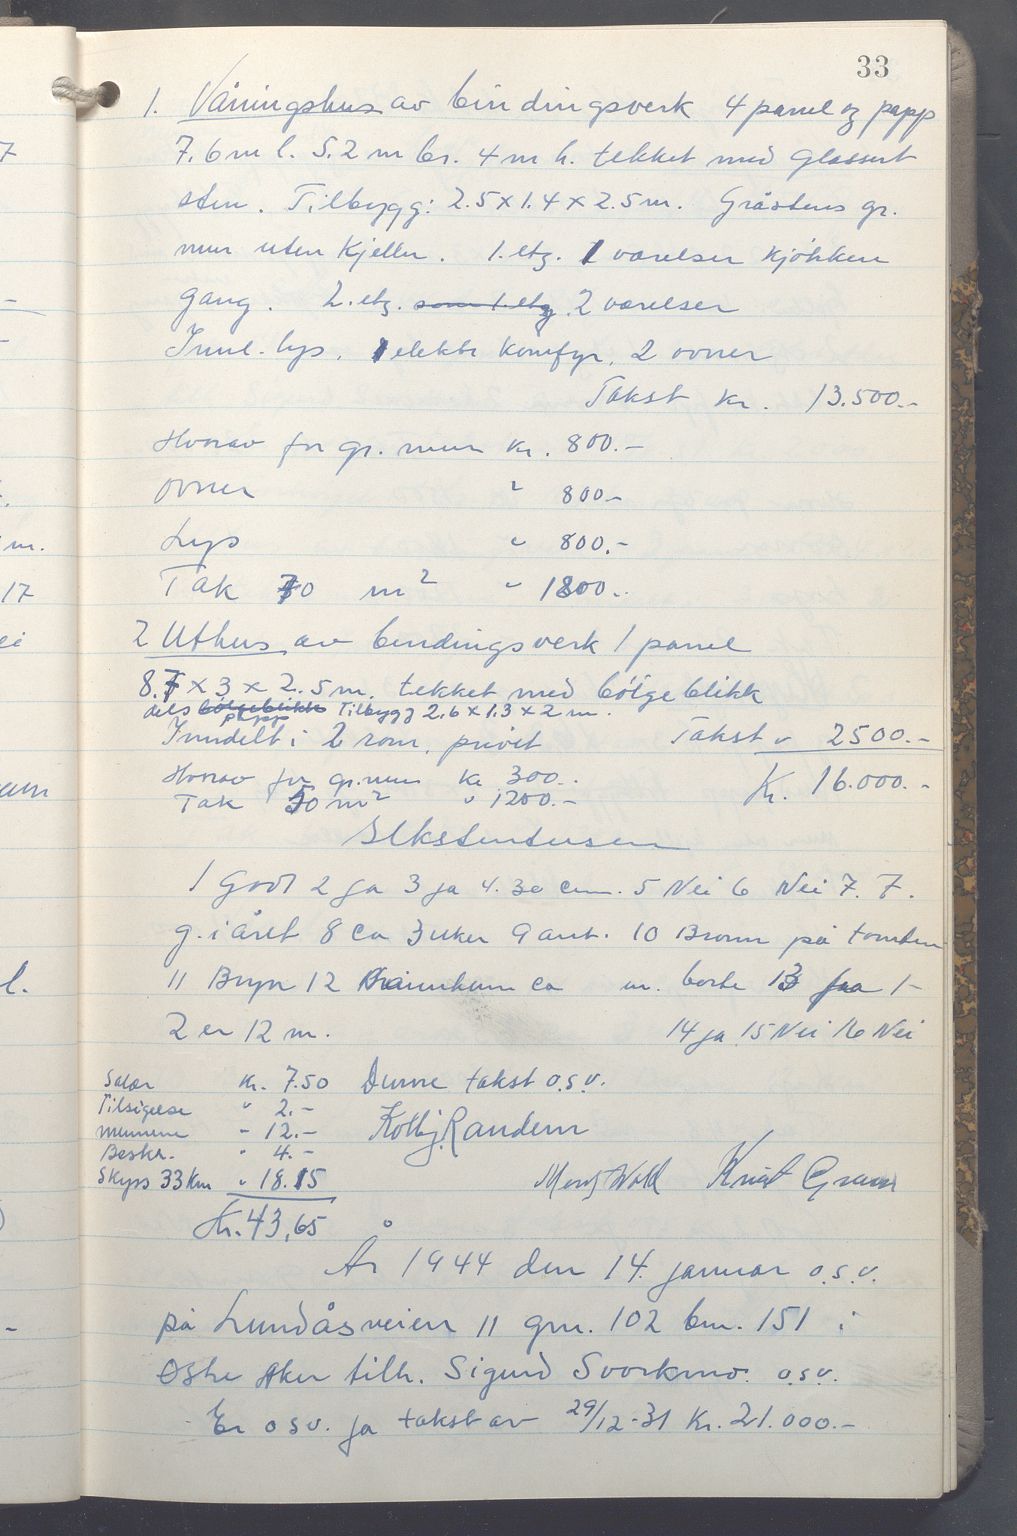 33
1. Våningshus av bindingsverk 4 panel og papp
7.6 m l. 5.2 m br. 4 m h. tekket med glassert
sten. Tilbygg: 2.5 x 1.4 x 2.5 m. Gråstens gr.
mur uten kjeller. 1. etg. 1 værelser kjökken
gang. 2. etg. som 1. etg. 2 værelser
Innl. lys. 1 elektr. komfyr, 2 ovner
Takst kr. 13.500.-
Hvorav for gr. mur kr. 800.-
ovner " 800.-
Lys " 800.-
Tak 70 m² " 1800.-
2 Uthus av bindingsverk 1 panel
8.7 x 3 x 2.5 m. tekket med bölgeblikk
dels bölgeblikk papp Tilbygg 2.6 x 1.3 x 2 m.
Inndelt i 2 rom, privet Takst " 2500.-
Hvorav for gr. mur kr 300.-
Tak 50 m² " 1200.- Kr. 16.000.-
1 Godt 2 Ja 3 ja 4. 30 cm. 5 Nei 6 Nei 7. 7.
g. i året 8 Ca 3 uker 9 ant. 10 Brønn på tomten
11 Bryn 12 ca m. borte 13 fra 1-
2 er 12 m. 14 ja 15 Nei 16 Nei
Salær kr. 7.50 Denne takst o.s.v.
Tilsigelse " 2.- Kolbj. Randem
mennene " 12.-
Beskr. " 4.-
Skyss 33 km " 18.15 Knut Gram
Kr. 43,65
År 1944 den 14. januar o.s.v.
på Lundåsveien 11 gnr. 102 bnr. 151 i
Østre Aker tilh. Sigurd Svorkmo. o.s.v.
Er o s v. ja takst av 29/12-31 Kr. 21.000.-